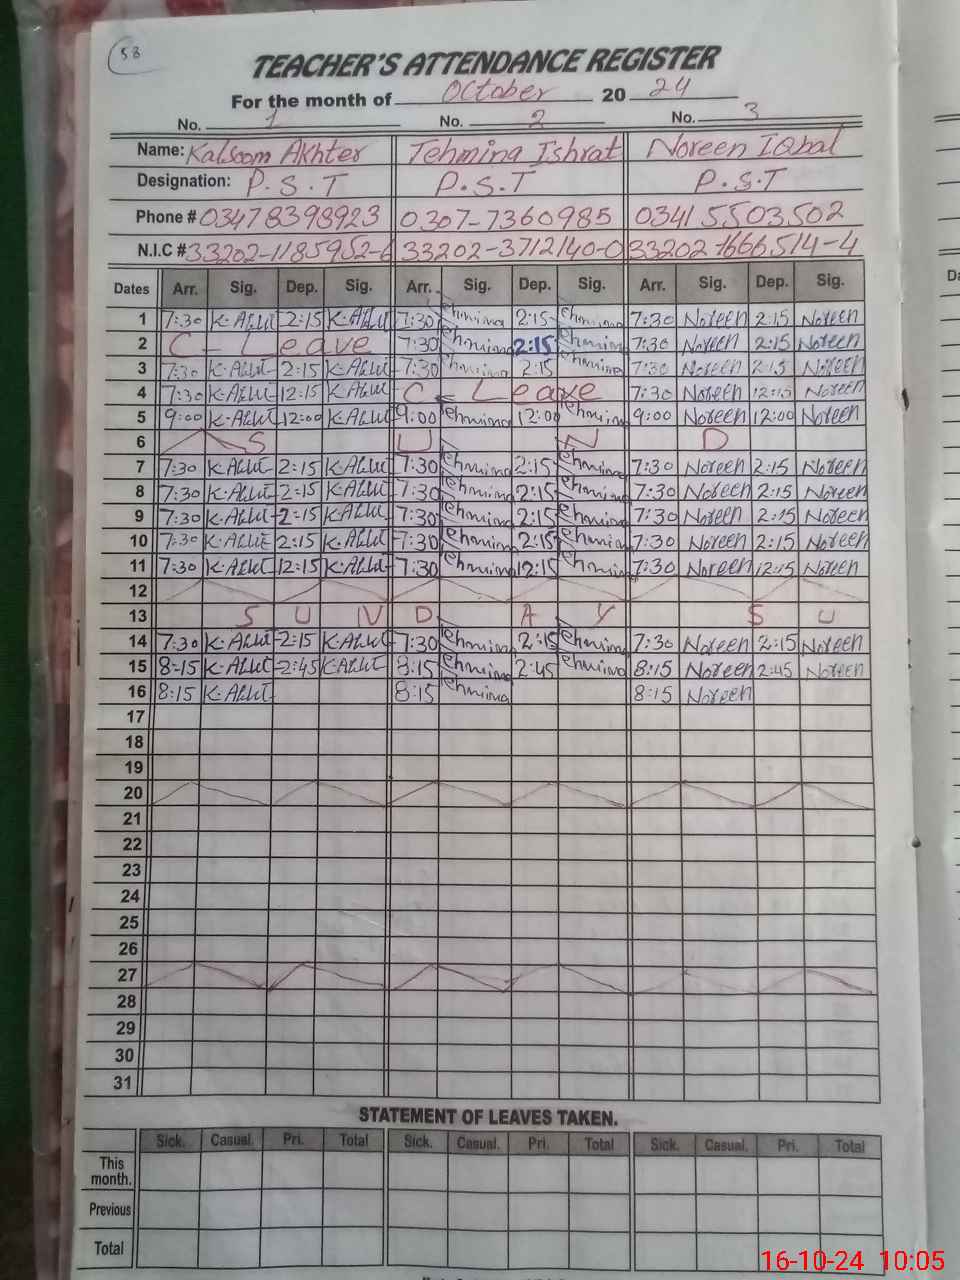 58
TEACHER'S ATTENDANCE REGISTER
For the month of October 20 24
No. 1 No. 2 No. 3
Name: Kalsoom Akhter Tehmina Ishrat Noreen IQbal
Designation: P.S.T P.S.T P.S.T
Phone # 03478398923 0307-7360985 03415503502
N.I.C # 33202-1185952-6 33202-3712140-0 33202 1666514-4
Dates Arr. Sig. Dep. Sig. Arr. Sig. Dep. Sig. Arr. Sig. Dep. Sig.
1 7:30 K-Akhtt 2:15 K-Akhtt 7:30 Tehmina 2:15 Tehmina 7:30 Noreen 2:15 Noreen
2 C - Leave 7:30 Tehmina 2:15 Tehmina 7:30 Noreen 2:15 Noreen
3 7:30 K-Akhtt 2:15 K-Akhtt 7:30 Tehmina 2:15 Tehmina 7:30 Noreen 2:15 Noreen
4 7:30 K-Akhtt 12:15 K-Akhtt C - Leave 7:30 Noreen 12:15 Noreen
5 9:00 K-Akhtt 12:00 K-Akhtt 9:00 Tehmina 12:00 Tehmina 9:00 Noreen 12:00 Noreen
6 S U N D
7 7:30 K-Akhtt 2:15 K-Akhtt 7:30 Tehmina 2:15 Tehmina 7:30 Noreen 2:15 Noreen
8 7:30 K-Akhtt 2:15 K-Akhtt 7:30 Tehmina 2:15 Tehmina 7:30 Noreen 2:15 Noreen
9 7:30 K-Akhtt 2:15 K-Akhtt 7:30 Tehmina 2:15 Tehmina 7:30 Noreen 2:15 Noreen
10 7:30 K-Akhtt 2:15 K-Akhtt 7:30 Tehmina 2:15 Tehmina 7:30 Noreen 2:15 Noreen
11 7:30 K-Akhtt 12:15 K-Akhtt 7:30 Tehmina 12:15 Tehmina 7:30 Noreen 12:15 Noreen
12
13 S U N D A Y S U
14 7:30 K-Akhtt 2:15 K-Akhtt 7:30 Tehmina 2:15 Tehmina 7:30 Noreen 2:15 Noreen
15 8:15 K-Akhtt 2:45 K-Akhtt 8:15 Tehmina 2:45 Tehmina 8:15 Noreen 2:45 Noreen
16 8:15 K-Akhtt 8:15 Tehmina 8:15 Noreen
17
18
19
20
21
22
23
24
25
26
27
28
29
30
31
STATEMENT OF LEAVES TAKEN.
Sick. Casual. Pri. Total Sick. Casual. Pri. Total Sick. Casual. Pri. Total
This
month.
Previous
Total
16-10-24 10:05